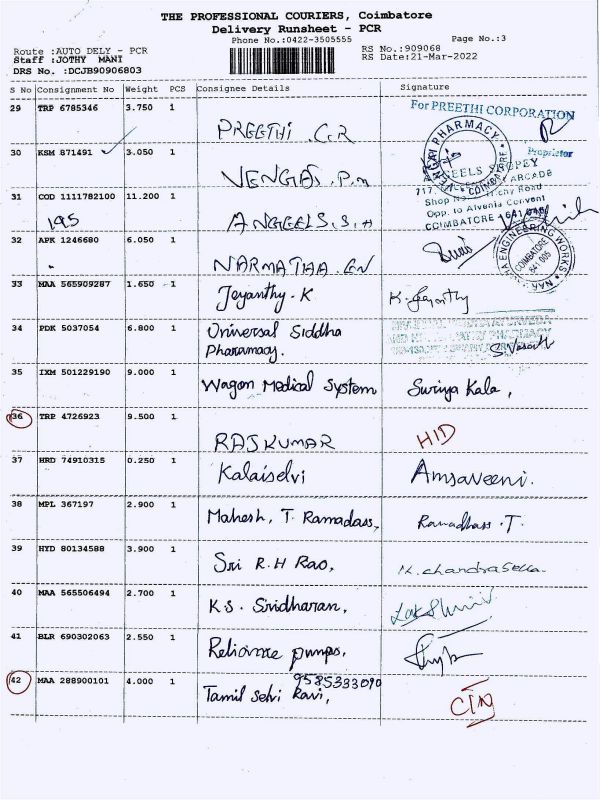 THE PROFESSIONAL COURIERS, Coimbatore
Delivery Runsheet - PCR
Phone No.:0422-3505555
Page No.:3
Route :AUTO DELY - PCR
RS No.:909068
Staff :JOTHY MANI
RS Date:21-Mar-2022
DRS No. :DCJB90906803
S No Consignment No Weight PCS Consignee Details Signature
29 TRP 6785346 3.750 1
For PREETHI CORPORATION
PREETHI .C.R
Proprietor
30 KSM 871491 3.050 1
PHARMACY
COIMBATORE
VENGAS. P.
31 COD 1111782100 11.200 1
195
ANGEELS.S.H
717, ARCADE
Shop No. Road
Opp. to Alvenia Convent
COIMBATORE 641 045
32 APK 1246680 6.050 1
NARMATHA .EN
ENGINEERING WORKS
COIMBATORE
641 005
33 MAA 565909287 1.650 1 Jeyanthy. K K. Jeyanthy
34 PDK 5037054 6.800 1 Universal Siddha
Pharamacy. S. Vasanth
35 IXM 501229190 9.000 1 Wagon Medical System Suriya Kala,
36 TRP 4726923 9.500 1
RAJKUMAR HID
37 HRD 74910315 0.250 1 Kalaiselvi Amsaveeni.
38 MPL 367197 2.900 1 Mahesh, T. Ramadass, Ramadhass .T.
39 HYD 80134588 3.900 1 Sri R.H Rao, K. chandraseka
40 MAA 565506494 2.700 1 K.S. Sridharan, Lakshmi
41 BLR 690302063 2.550 1 Reliance pumps,
42 MAA 288900101 4.000 1 9585333090
Tamil Selvi Ravi, CIN